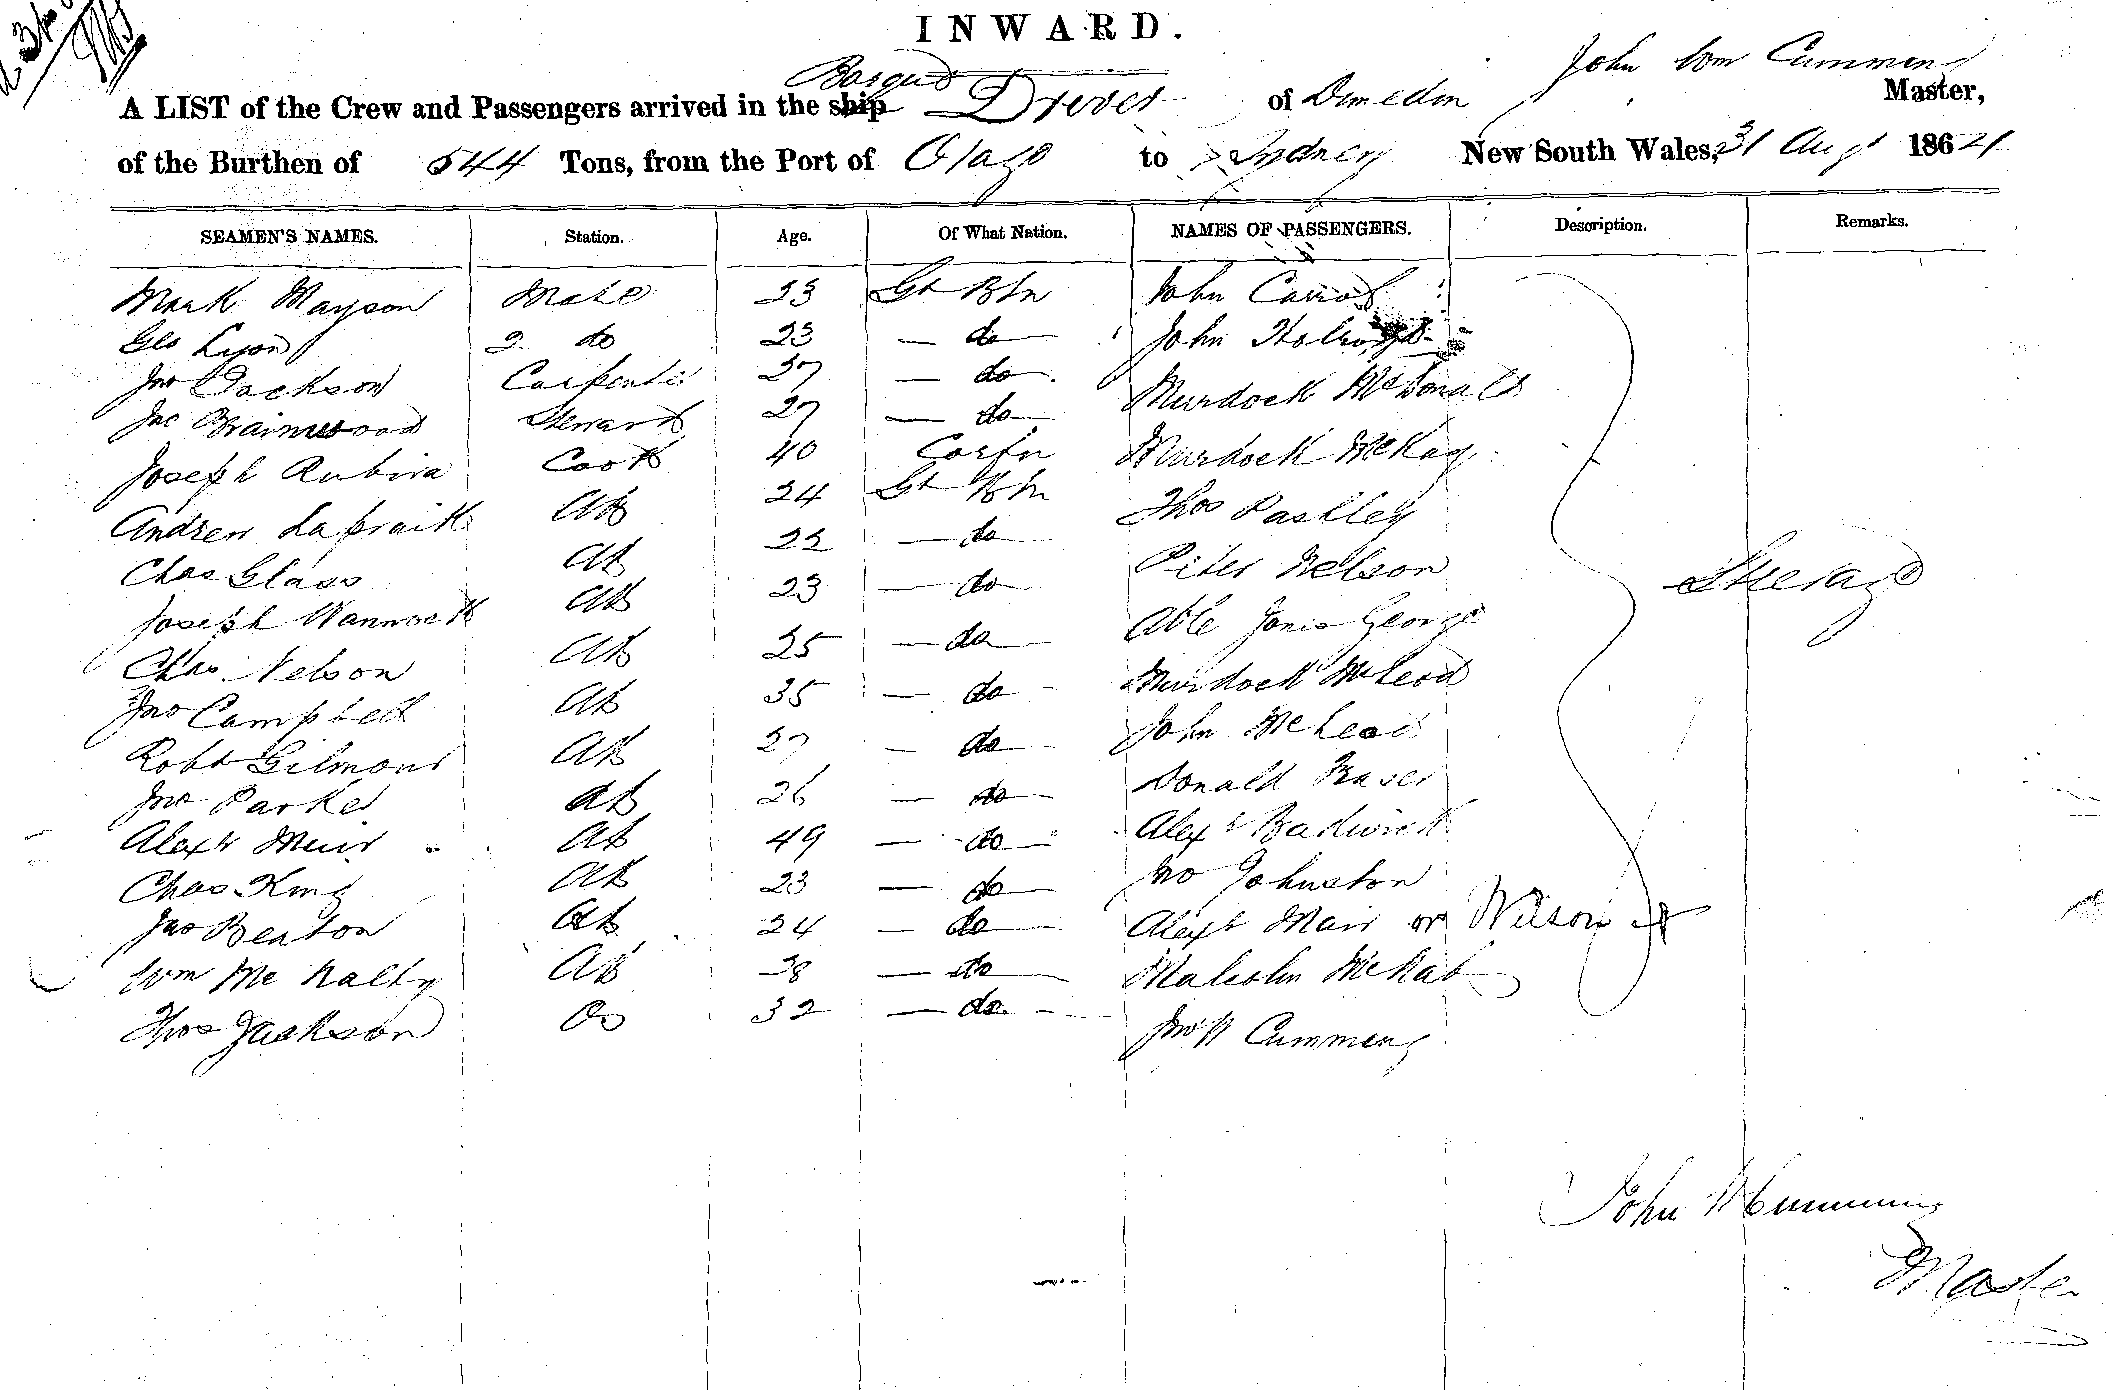 INWARD.
John Wm Cummens
A LIST of the Crew and Passengers arrived in the ship Barque Drover of Dunedin Master,
of the Burthen of 544 Tons, from the Port of Otago to Sydney New South Wales, 31 Aug 186
SEAMEN'S NAMES. Station. Age. Of What Nation. NAMES OF PASSENGERS. Description. Remarks.
Mark Mayson Mate 33 Gt Btn John Carrol
Geo Lyon 2 do 23 do John
Jno Jackson Carpenter 37 do Murdock McDonald
Jas Steward 27 do
Joseph Rubira Cook 40 Corfu Murdock McKay
Andrew Lapraik AB 24 Gt Btn Thos Pashley
Chas Glass AB 22 do Peter Nelson
Joseph AB 23 do Able Jonis George
Chas Nelson AB 25 do Murdock McLeod
Jno Campbell AB 35 do John McLeod
Robt Gilmour AB 27 do Donald Fraser
Jno Parker AB 26 do Alexr
Alexr Muir AB 49 do Jno Johnston
Chas King AB 23 do
Jno Benton AB 24 do Alexr Mair or Wilson
Wm McNalty AB 38 do Malcolm McRae
Thos Jackson OS 32 do Jno W Cummens
Steerage
John W Cumming
Master